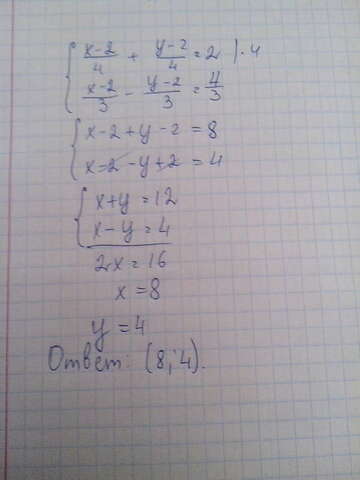 { (x-2)/4 + (y-2)/4 = 2 | · 4
(x-2)/3 - (y-2)/3 = 4/3
{ x-2+y-2 = 8
x-2-y+2 = 4
{ x+y = 12
x-y = 4
2x = 16
x = 8
y = 4
Ответ: (8; 4).